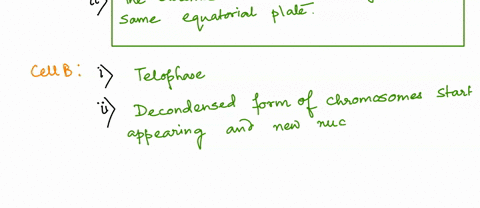 ii)
same equatorial plate.
Cell B: i) Telophase
ii) Decondensed form of chromosomes start
appearing and new nuc